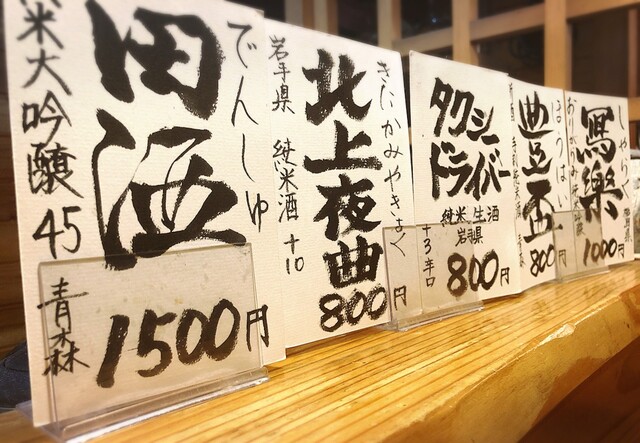 でんしゅ
田酒
純米大吟醸45
青森
1500円
きたかみやきょく
北上夜曲
岩手県 純米酒 +10
800円
タクシー
ドライバー
純米 生酒
岩手県
+3 辛口
800円
ほうはい
豊盃
800円
しゃらく
寫樂
1000円